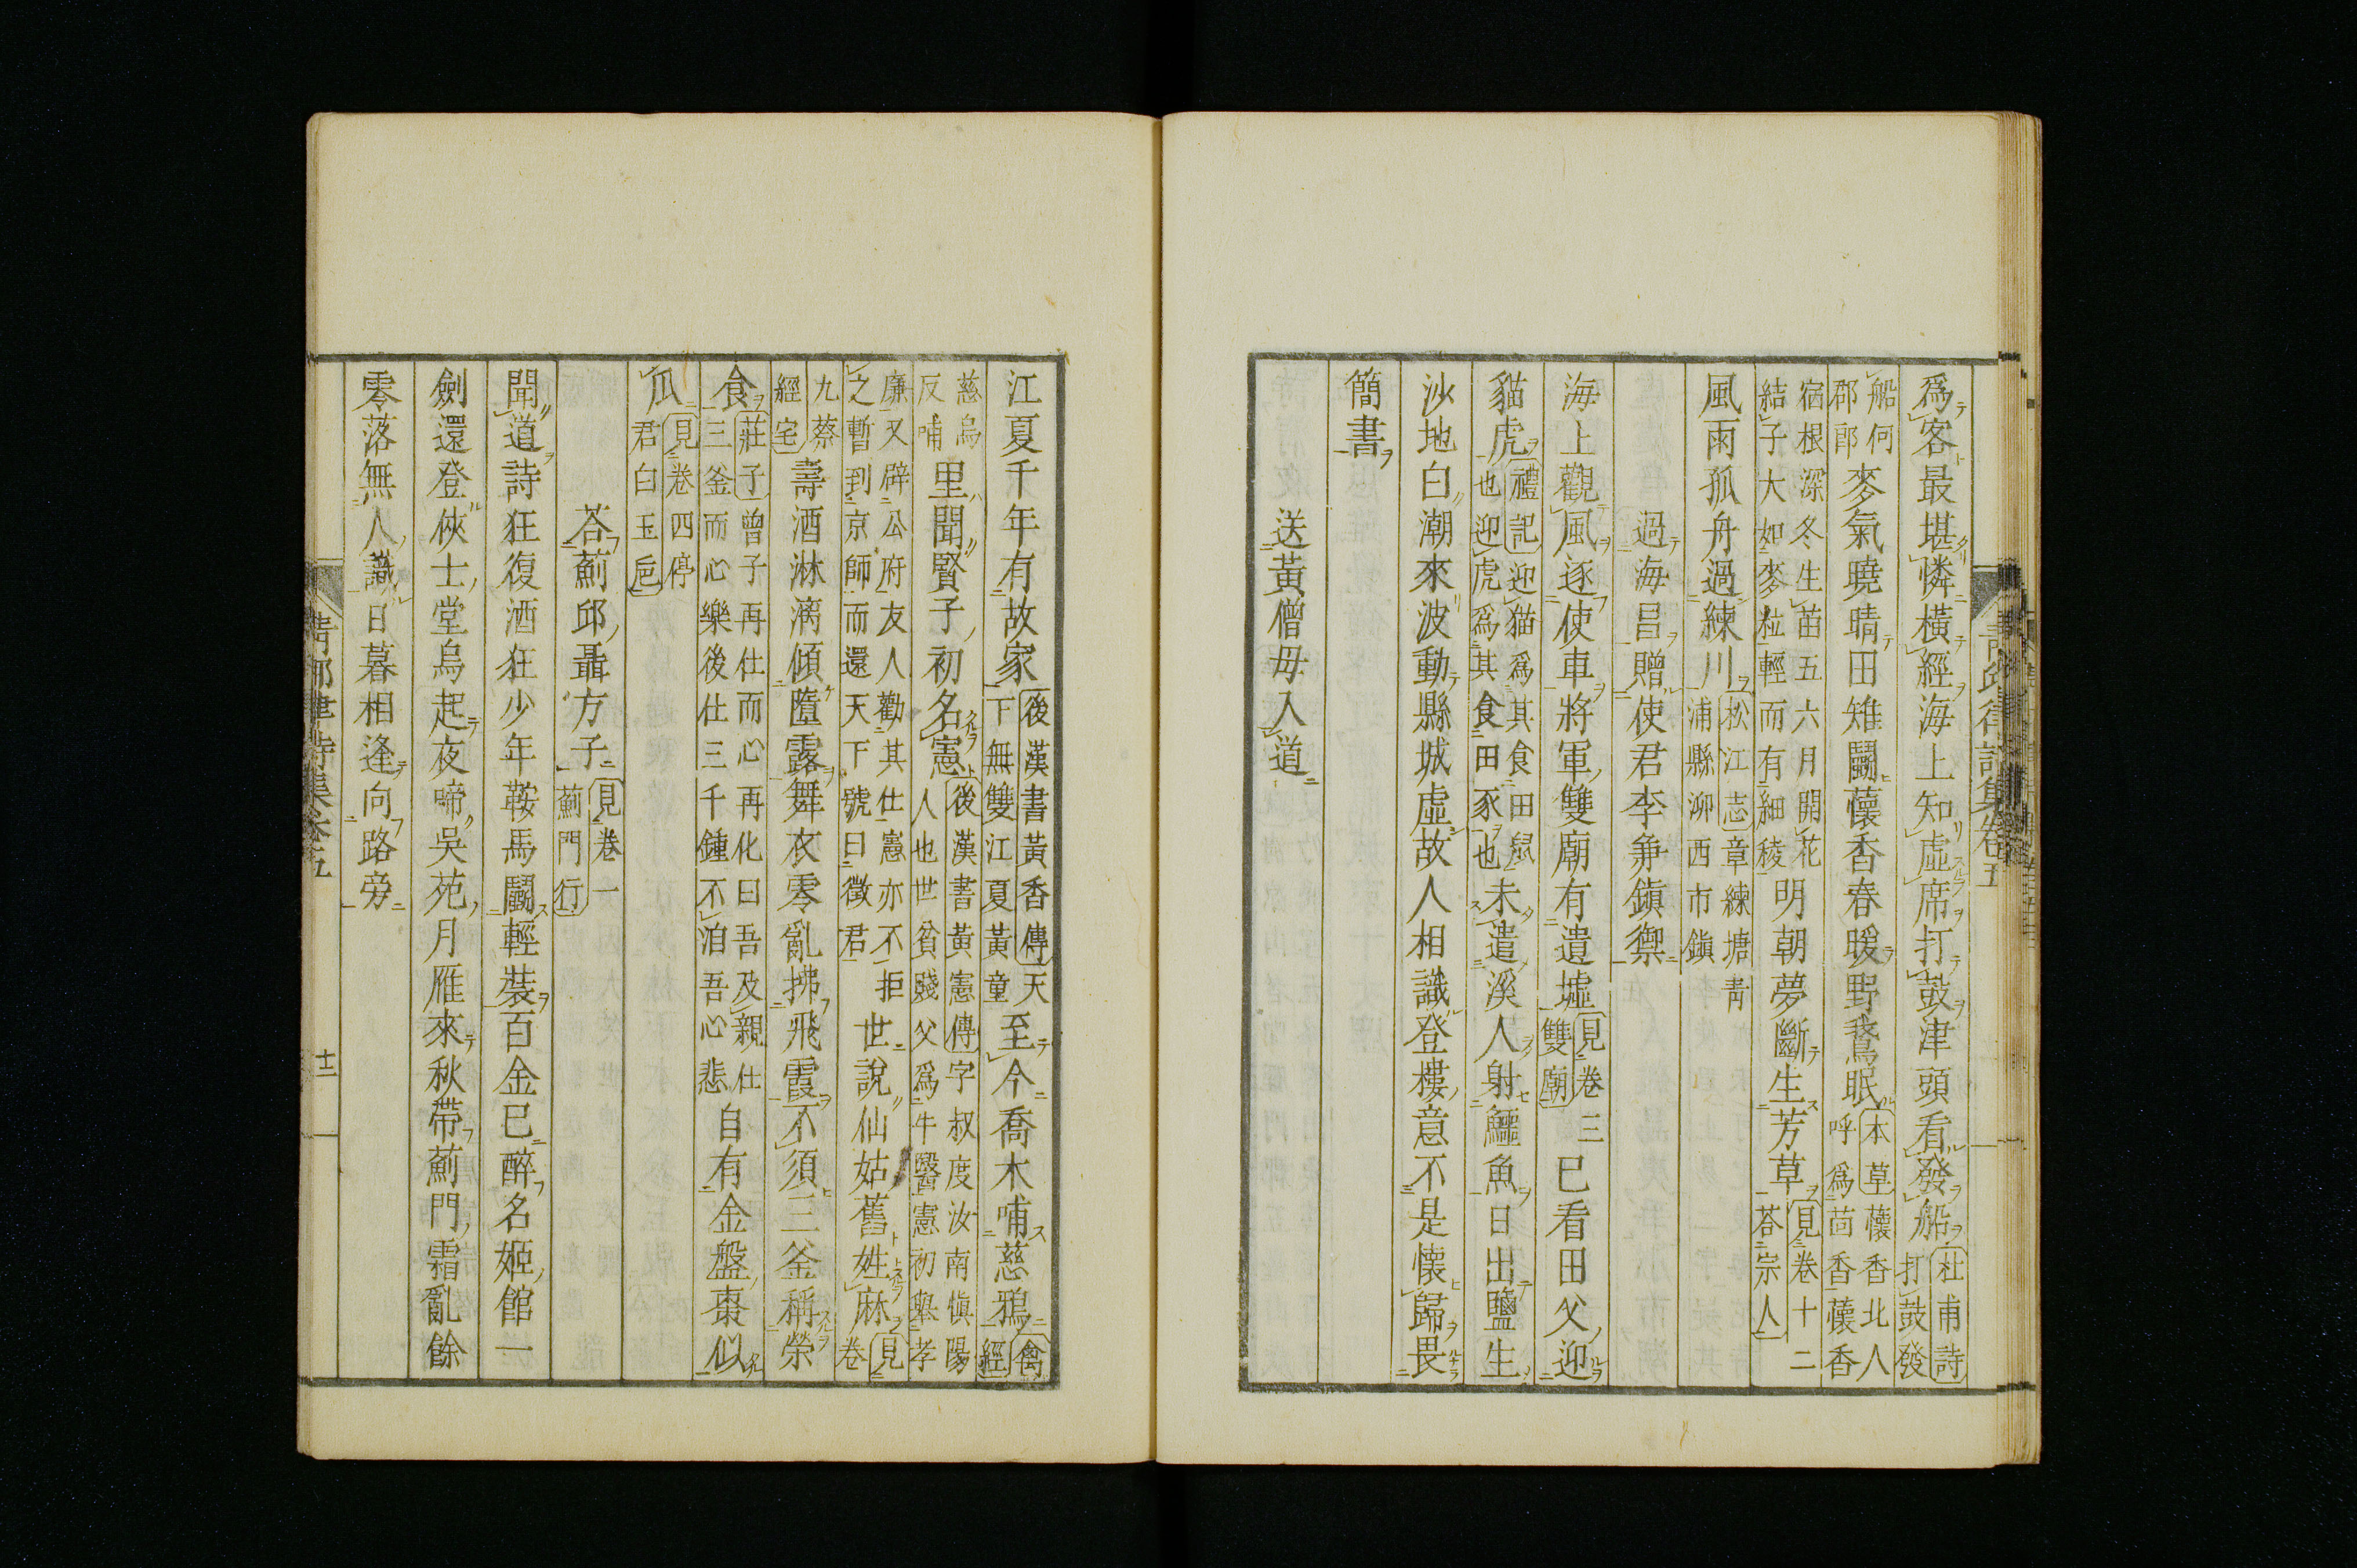 爲客最堪憐橫經海上知虛席打鼓津頭看發船杜甫詩打鼓發
船何郡郎麥氣曉晴田雉鬭蘹香春暖野鵞眠本草蘹香北人呼爲茴香蘹香
宿根深冬生苗五六月開花結子大如麥粒輕而有細稜明朝夢斷生芳草見卷十二荅宗人
風雨孤舟過練川松江志章練塘青浦縣泖西市鎭
過海昌贈使君李筭鎭禦
海上觀風逐使車將軍雙廟有遺墟見卷三雙廟已看田父迎
貓虎禮記迎猫爲其食田鼠也迎虎爲其食田豕也未遣溪人射鱷魚日出鹽生
沙地白潮來波動縣城虛故人相識登樓意不是懷歸畏
簡書
送黃僧毋入道
江夏千年有故家後漢書黃香傳天下無雙江夏黃童至今喬木哺慈鴉禽經
慈烏反哺里聞賢子初名憲後漢書黃憲傳字叔度汝南愼陽人也世貧賤父爲牛醫憲初舉孝
廉又辟公府友人勸其仕憲亦不拒之暫到京師而還天下號曰徵君世說仙姑舊姓麻見卷
九蔡經宅壽酒淋漓傾墮露舞衣零亂拂飛霞不須三釜稱榮
食莊子曾子再仕而心再化曰吾及親仕三釜而心樂後仕三千鍾不洎吾心悲自有金盤棗似
瓜見卷四停君白玉巵
荅薊邱聶方子見卷一薊門行
聞道詩狂復酒狂少年鞍馬鬭輕裝百金已醉名姬館一
劍還登俠士堂烏起夜啼吳苑月雁來秋帶薊門霜亂餘
零落無人識日暮相逢向路旁
青邱律詩集卷五
十二